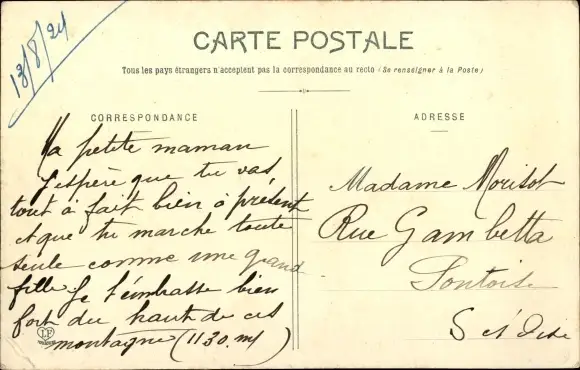 13/8/24
CARTE POSTALE
Tous les pays étrangers n'acceptent pas la correspondance au recto (Se renseigner à la Poste)
CORRESPONDANCE
Ma petite maman
J'espère que tu vas
tout à fait bien à présent
et que tu marche toute
seule comme une grand
fille. Je t'embrasse bien
fort du haut de ces
montagne (1130.m)
LF
ADRESSE
Madame Morisot
Rue Gambetta
Pontoise
S et Oise